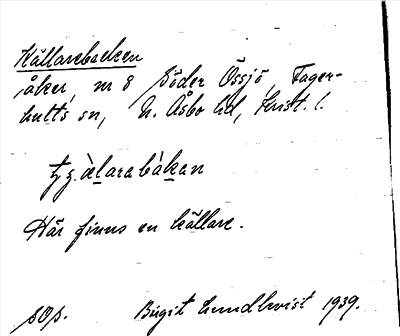 Källarebacken
åker, nr 8 Söder Össjö, Fager-
hults sn, N. Åsbo hd, Krist. l.
Här finns en källare.
sOp. Birgit Lundkvist 1939.